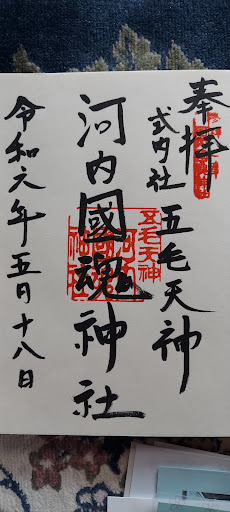 奉拝
式内社 五毛天神
河内國魂神社
五毛天神
令和元年五月十八日